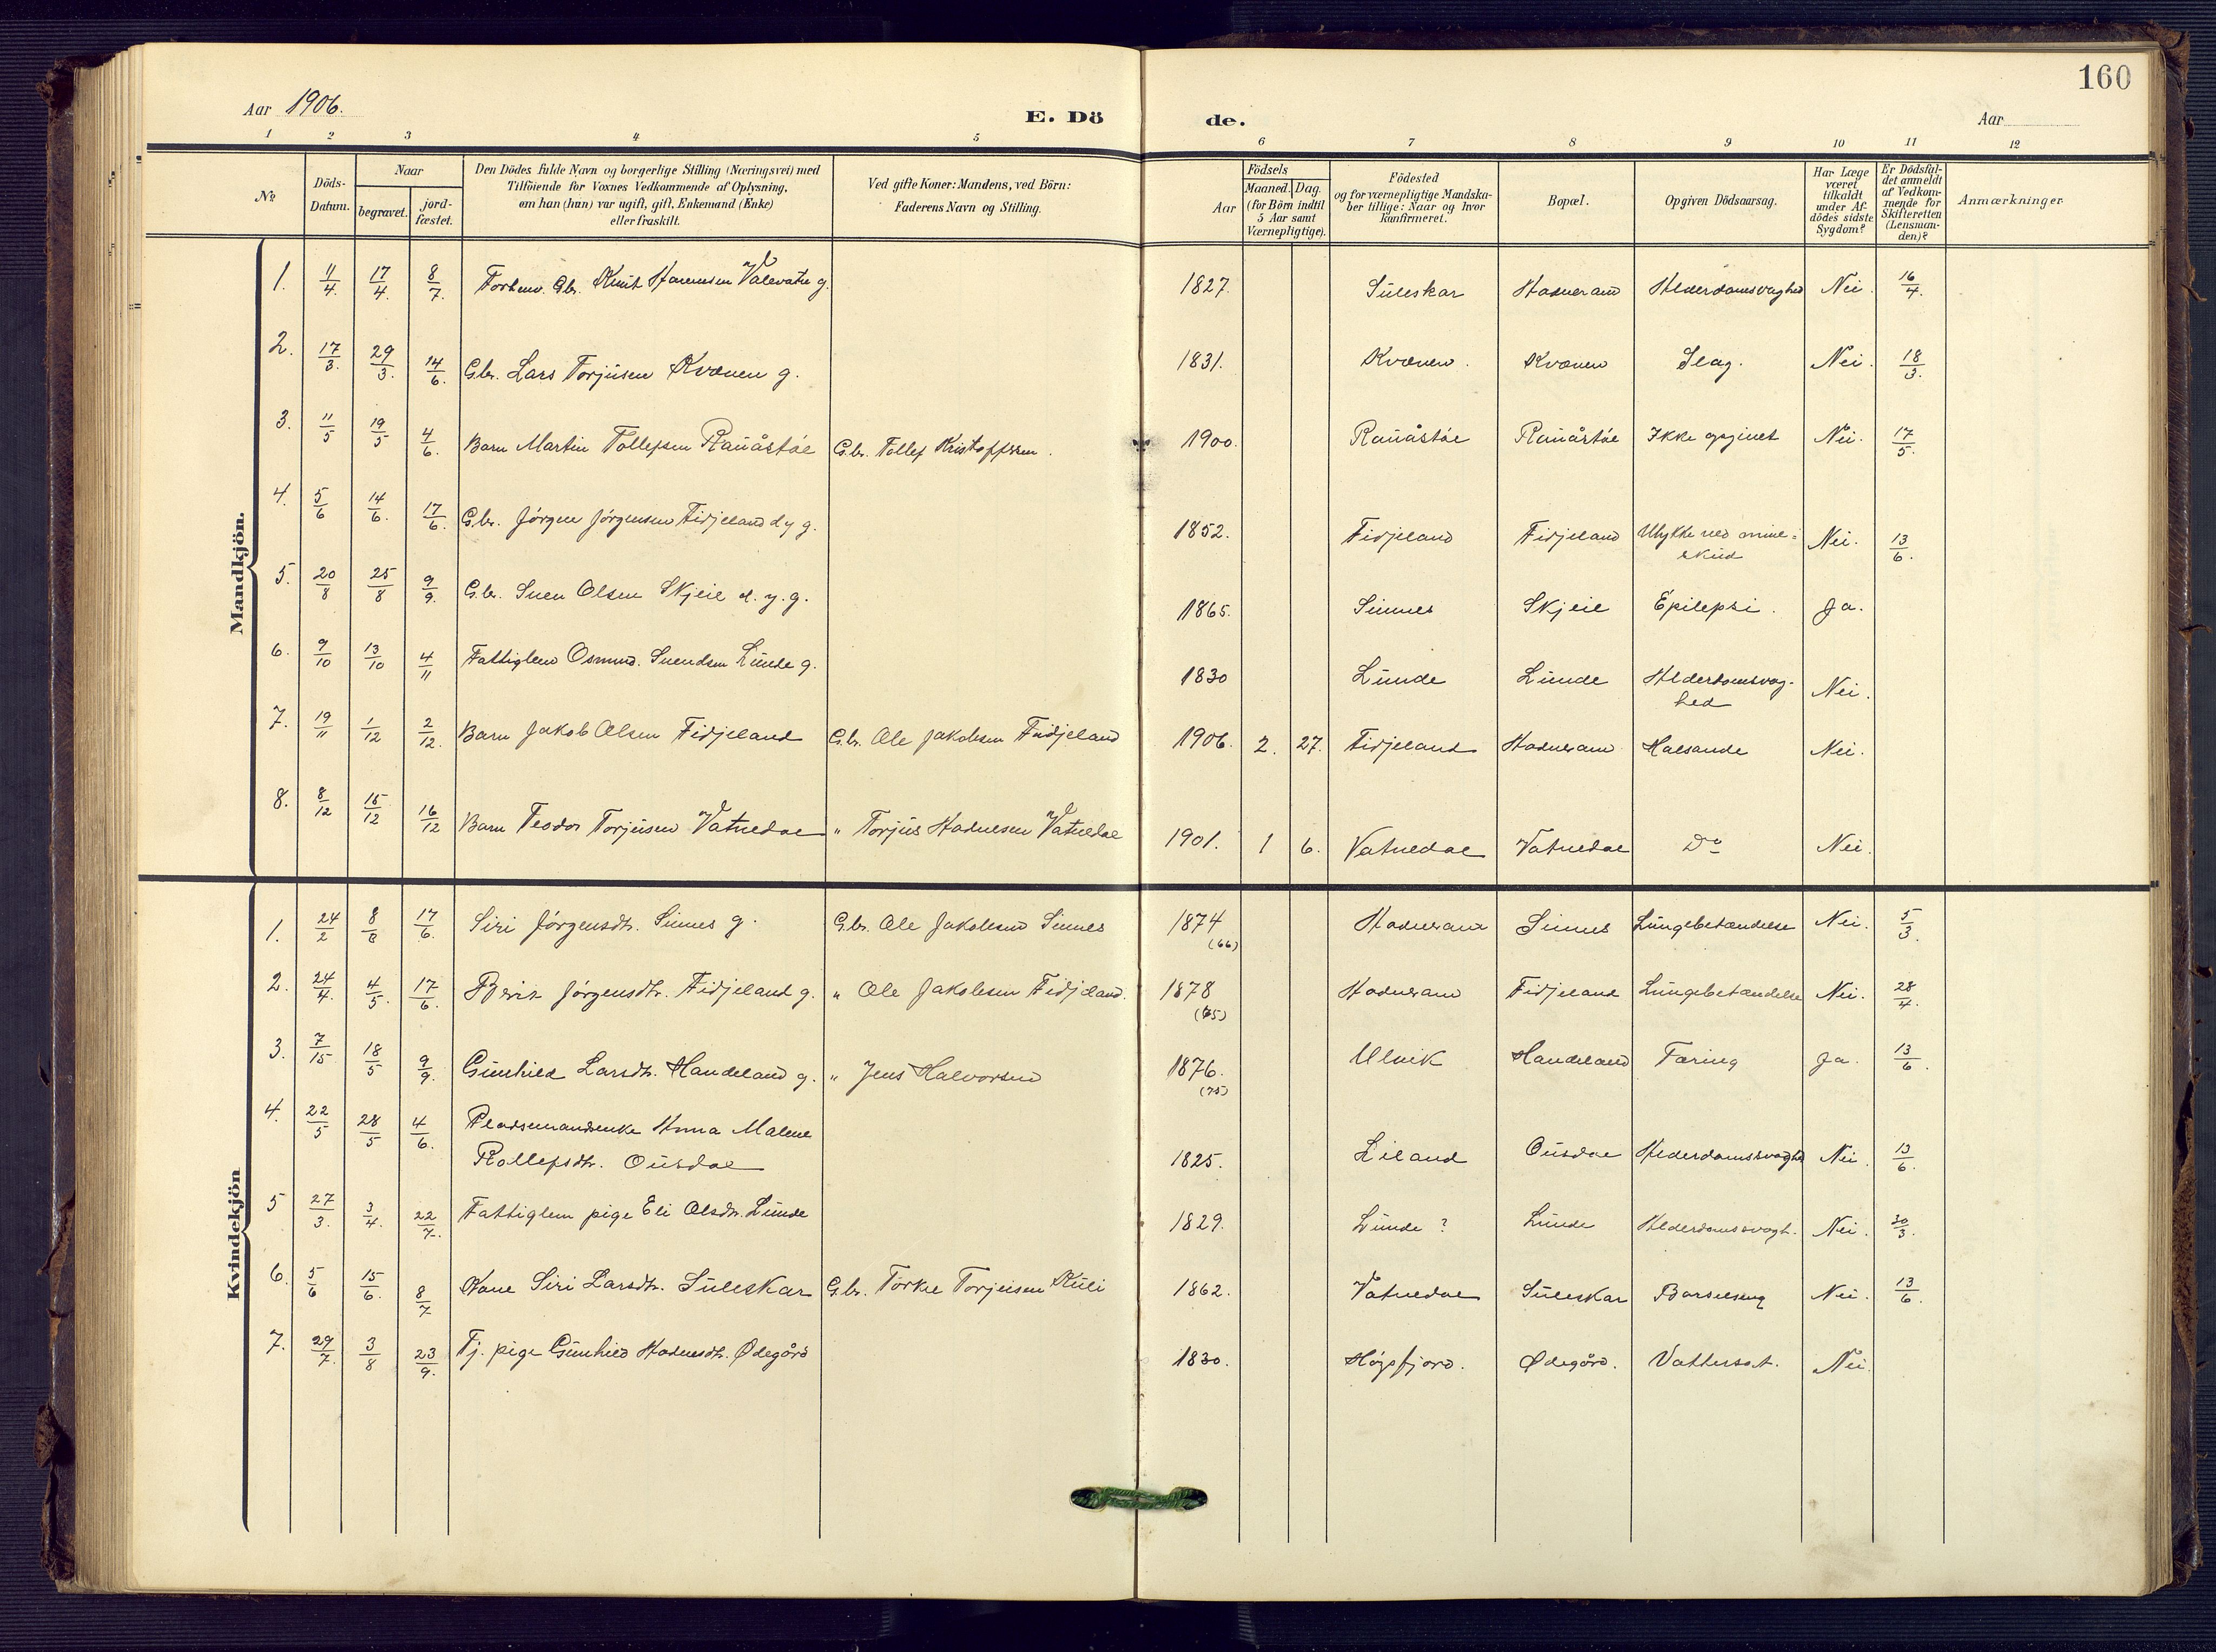 160
Aar 1906.
E. Dö de.
Aar
1 2 3 4 5 6 7 8 9 10 11 12
No.
Döds-Datum.
Naar
begravet.
jord-fæstet.
Den Dödes fulde Navn og borgerlige Stilling (Næringsvei) med
Tilföiende for Voxnes Vedkommende af Oplysning,
om han (hun) var ugift, gift, Enkemand (Enke)
eller fraskilt.
Ved gifte Koner: Mandens, ved Börn:
Faderens Navn og Stilling.
Födsels
Aar
Maaned. Dag.
(for Börn indtil
5 Aar samt
Værnepligtige).
Födested
og for værnepligtige Mandska-
ber tillige: Naar og hvor
konfirmeret.
Bopæl.
Opgiven Dödsaarsag.
Har Læge
været
tilkaldt
under Af-
dödes sidste
Sygdom?
Er Dödsfal-
det anmeldt
af Vedkom-
mende for
Skifteretten
(Lensman-
den)?
Anmærkninger
Mandkjön.
1. 11/4 17/4 8/7. Gbr. Knut Valevatn g. 1827. Suleskar Hadneram Alderdomsvaghed Nei. 16/4.
2. 17/3. 29/3. 14/6. Gbr. Lars Torjusen Kvænen g. 1831. Kvænen. Kvænen Slag. Nei. 18/3.
3. 11/5 19/5 4/6. Barn Martin Tollefsen Rauåstøl Gbr. Tollef Kristoffersen. 1900. Rauåstøl Rauåstøl Ikke opgivet Nei. 17/5.
4. 5/6 14/6. 17/6. Gbr. Jørgen Jørgensen Fidjeland d y g. 1852. Fidjeland Fidjeland Ulykke ved mine-
skud Nei. 13/6.
5. 20/8 25/8 9/9. Gbr. Sven Olsen Skjeie d. y. g. 1865. Sinnes Skjeie Epilepsi. Ja.
6. 9/10 13/10 4/11 Fattiglem Osmund Svendsen Lunde g. 1830 Lunde Lunde Alderdomsvag-
hed Nei.
7. 19/11 1/12 2/12. Barn Jakob Olsen Fidjeland Gbr. Ole Jakobsen Fidjeland 1906. 2. 27. Fidjeland Hadneram Halsonde Nei.
8. 8/12 15/12 16/12 Barn Teodor Torjusen Vatnedal " Torjus Hadnesen Vatnedal 1901. 1 6. Vatnedal Vatnedal Do Nei.
Kvindekjön
1. 24/2 8/3 17/6. Siri Jørgensdtr. Sinnes g. Gbr. Ole Jakobsen Sinnes 1874 Hadneram Sinnes Lungebetændelse Nei. 5/3.
(66)
2. 24/4. 4/5. 17/6. Berit Jørgensdtr. Fidjeland g. " Ole Jakobsen Fidjeland. 1878 Hadneram Fidjeland Lungebetændelse Nei. 28/4.
(65)
3. 7/15 18/5 9/9. Gunhild Larsdtr. Handeland g. " Jens Halvorsen 1876. Ulvik Handeland Tæring Ja. 13/6.
(75)
4. 22/5 28/5 4/6. Pladsemandsenke Anna Malene
Rollefsdtr. Ousdal 1825. Liland Ousdal Alderdomssvaghed Nei. 13/6.
5 27/3. 3/4. 22/7. Fattiglem pige Eli Olsdtr. Lunde 1829. Lunde ? Lunde Alderdomssvagh. Nei. 30/3.
6. 5/6 15/6. 8/7 Kone Siri Larsdtr. Suleskar Gbr. Torkel Torjusen Kuli 1862. Vatnedal Suleskar Barselseng Nei. 13/6.
7. 29/7. 3/8 23/9. Tj. pige Gunhild Hadnesdtr. Ødegård 1830. Høgsfjord. Ødegård. Vattersot. Nei.